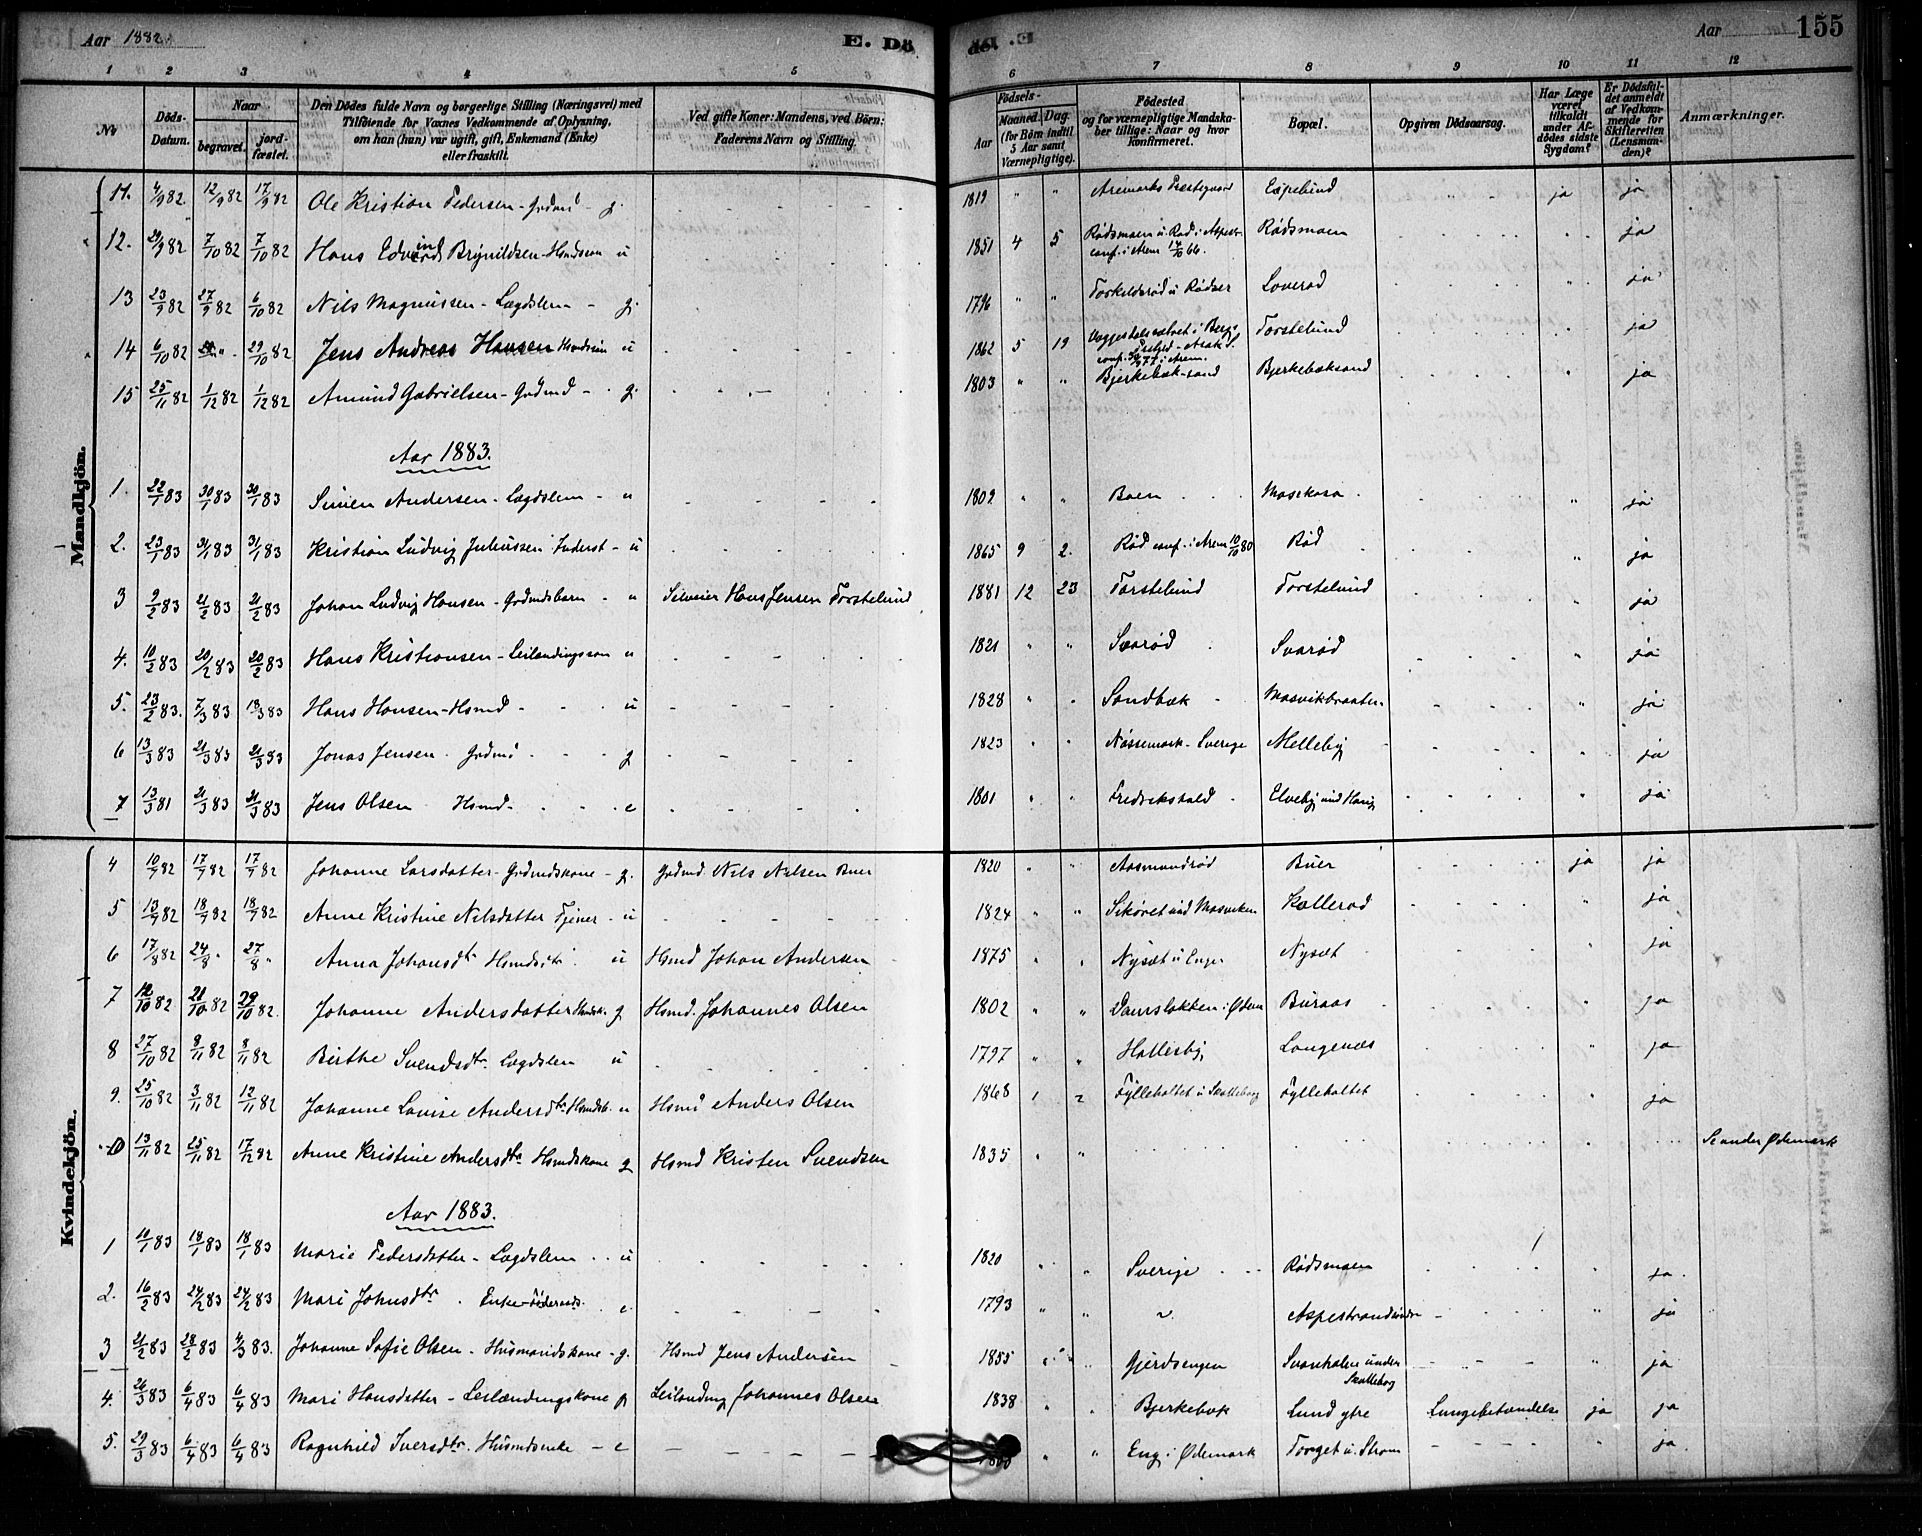 Aar 1882
E. Dö
de.
Aar
155
1 2 3 4 5 6 7 8 9 10 11 12
No
Döds-Datum.
Naar
begravet.
jordfæstet.
Den Dödes fulde Navn og borgerlige Stilling (Næringsvei) med Tilföiende for Voxnes Vedkommende af Oplysning, om han (hun) var ugift, gift, Enkemand (Enke) eller fraskilt.
Ved gifte Koner: Mandens, ved Börn: Faderens Navn og Stilling.
Födsels-
Aar
Maaned. Dag
(for Börn indtil 5 Aar samt Værnepligtige).
Födested og for værnepligtige Mandskaber tillige: Naar og hvor konfirmeret.
Bopæl.
Opgiven Dödsaarsag.
Har Læge været tilkaldt under Afdödes sidste Sygdom?
Er Dödsfaldet anmeldt af Vedkommende for Skifteretten (Lensmanden)?
Anmærkninger.
Mandkjön.
11. 4/9 82. 12/9 82 17/9 82 Ole Kristian Pedersen - Grdmd - g. 1819 " " Aremarks Prestegaard ja ja
12. 29/9 82 7/10 82 7/10 82 Hans Edvind Brynildsen - u 1851 4 5 Rødsmoen u. Rød i Aspestr. conf. i Arem Rødsmoen ja
13 23/9 82 27/9 82 6/10 82 Nils Magnussen - Lægdslem - g. 1796 " " Torkildsrød u Rødser Loverød ja
14 6/10 82 29/10 82 Jens Andreas Hansen u 1862 5 19 Torstelund ja
15 25/11 82 1/12 82 1/12 82 Amund Gabrielsen - Grdmd - g. 1803 " " Bjerkebæk-sand Bjerkebæksand ja
Aar 1883.
1. 22/1 83 30/1 83 30/1 83 Simen Andersen - Lægdslem - u 1802 " " Boen ja
2. 23/1 83 31/1 83 31/1 83 Kristian Ludvig Juliussen Inderst - u 1865 9 2. Rød conf. i Arem 10/10 80 Rød ja
3 9/2 83 21/2 83 21/2 83 Johan Ludvig Hansen - Grdmdsbarn - u Hans Jensen Torstelund 1881 12 23 Torstelund Torstelund ja
4. 10/2 83 20/2 83 20/2 83 Hans Kristiansen - Leilændingsson u 1821 " " Svarød Svarød ja
5. 23/2 83. 7/3 83 18/3 83 Hans Hansen - Hsmd - u 1828 " " Sandbæk Mosvikbraaten ja
6 13/3 83 21/3 83 21/3 83 Jonas Jensen. Grdmd g 1823 " " Nøssemark - Sverige Mellebÿ ja
7 13/3 81 21/3 83 21/3 83 Jens Olsen Hsmd. e 1801 " " Fredrikshald ja
Kvindekjön.
4 10/7 82 17/7 82 17/7 82 Johanne Larsdatter - Grdmdskone - g. Grdmd. Nils Nilsen Buer 1820 " " Aasmundrød Buer ja ja
5 13/7 82 18/7 82 18/7 82 Anne Kristine Nilsdatter Tjener - u 1824 " " Kollerød ja
6 17/8 82 24/8 " 27/8 " Anna Johansdtr u Hsmd Johan Andersen 1875 " " Nysæt u Enger Nysæt ja
7 12/10 82 21/10 82 29/10 82. Johanne Andersdatter g Hsmd. Johannes Olsen 1802 " " Buraas ja
8 27/10 82 8/11 82 8/11 82 Birthe Svendsdtr. Lægdslem u 1797 " " Hallesby Langenæs ja
9. 25/10 82 3/11 82 12/11 82 Johanne Lovise Andersdtr u Hsmd Anders Olsen 1868 Fylleholtet u Skolleborg Fylleholtet ja
10 13/11 82 25/11 82 17/12 82 Anne Kristine Andersdtr Hsmdskone g Hsmd Kristen Svendsen 1835 " " Se under Ødemark
Aar 1883.
1 10/1 83 18/1 83 18/1 83 Marie Pedersdatter - Lægdslem u 1820 " " Sverige Rødsmoen ja.
2. 16/2 83 24/2 83 24/2 83 Mari Johnsdtr. e 1793 " " ja
3 21/2 83 28/2 83 4/3 83. Johanne Sofie Olsen - Husmandskone - g. Hsmd Jens Andersen 1855 Gjerdsengen Svanholen under Skolleborg ja
4. 26/3 83 6/4 83 6/4 83 Mari Hansdatter - Leilændingskone g Leilænding Johannes Olsen 1838 " " Bjerkebæk Lund ytre Lungebetændelse ja ja
5. 29/3 83 6/4 83 6/4 83 Ragnhild Iversdtr. Husmdsenke - e " " Eng i Ødemark Torget u. Strøm ja